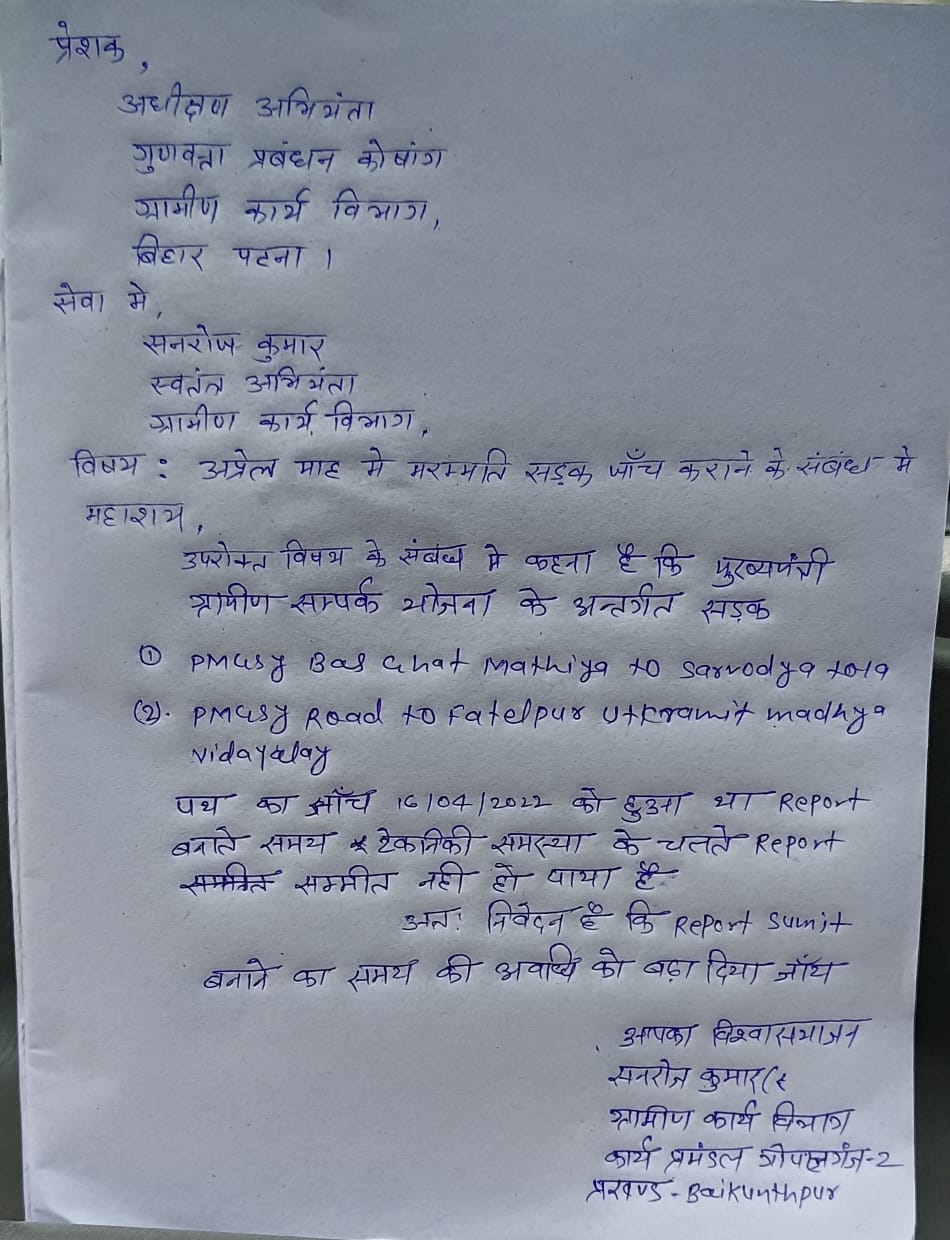 प्रेशक,
अधीक्षण अभियंता
गुणवत्ता प्रबंधन कोषांग
ग्रामीण कार्य विभाग,
बिहार पटना ।
सेवा मे,
सनरोज कुमार
स्वतंत्र अभियंता
ग्रामीण कार्य विभाग,
विषय : अप्रेल माह मे मरम्मति सड़क जाँच कराने के संबंध मे
महाशय,
उपरोक्त विषय के संबंध मे कहना है कि मुख्यमंत्री
ग्रामीण सम्पर्क योजना के अन्तर्गत सड़क
① PMGSY Bas Ghat Mathiya to Sarvodya tola
(2). PMGSY Road to Fatelpur Utkramit madhya
vidayalay
पथ का जाँच 16/04/2022 को हुआ था Report
बनाते समय टेकनिकी समस्या के चलते Report
सम्मीत नही हो पाया है
अतः निवेदन है कि Report sumit
बनाने का समय की अवधि को बढ़ा दिया जाँय
आपका विश्वासभाजन
सनरोज कुमार
ग्रामीण कार्य विभाग
कार्य प्रमंडल गोपालगंज-2
प्रखण्ड - Baikunthpur